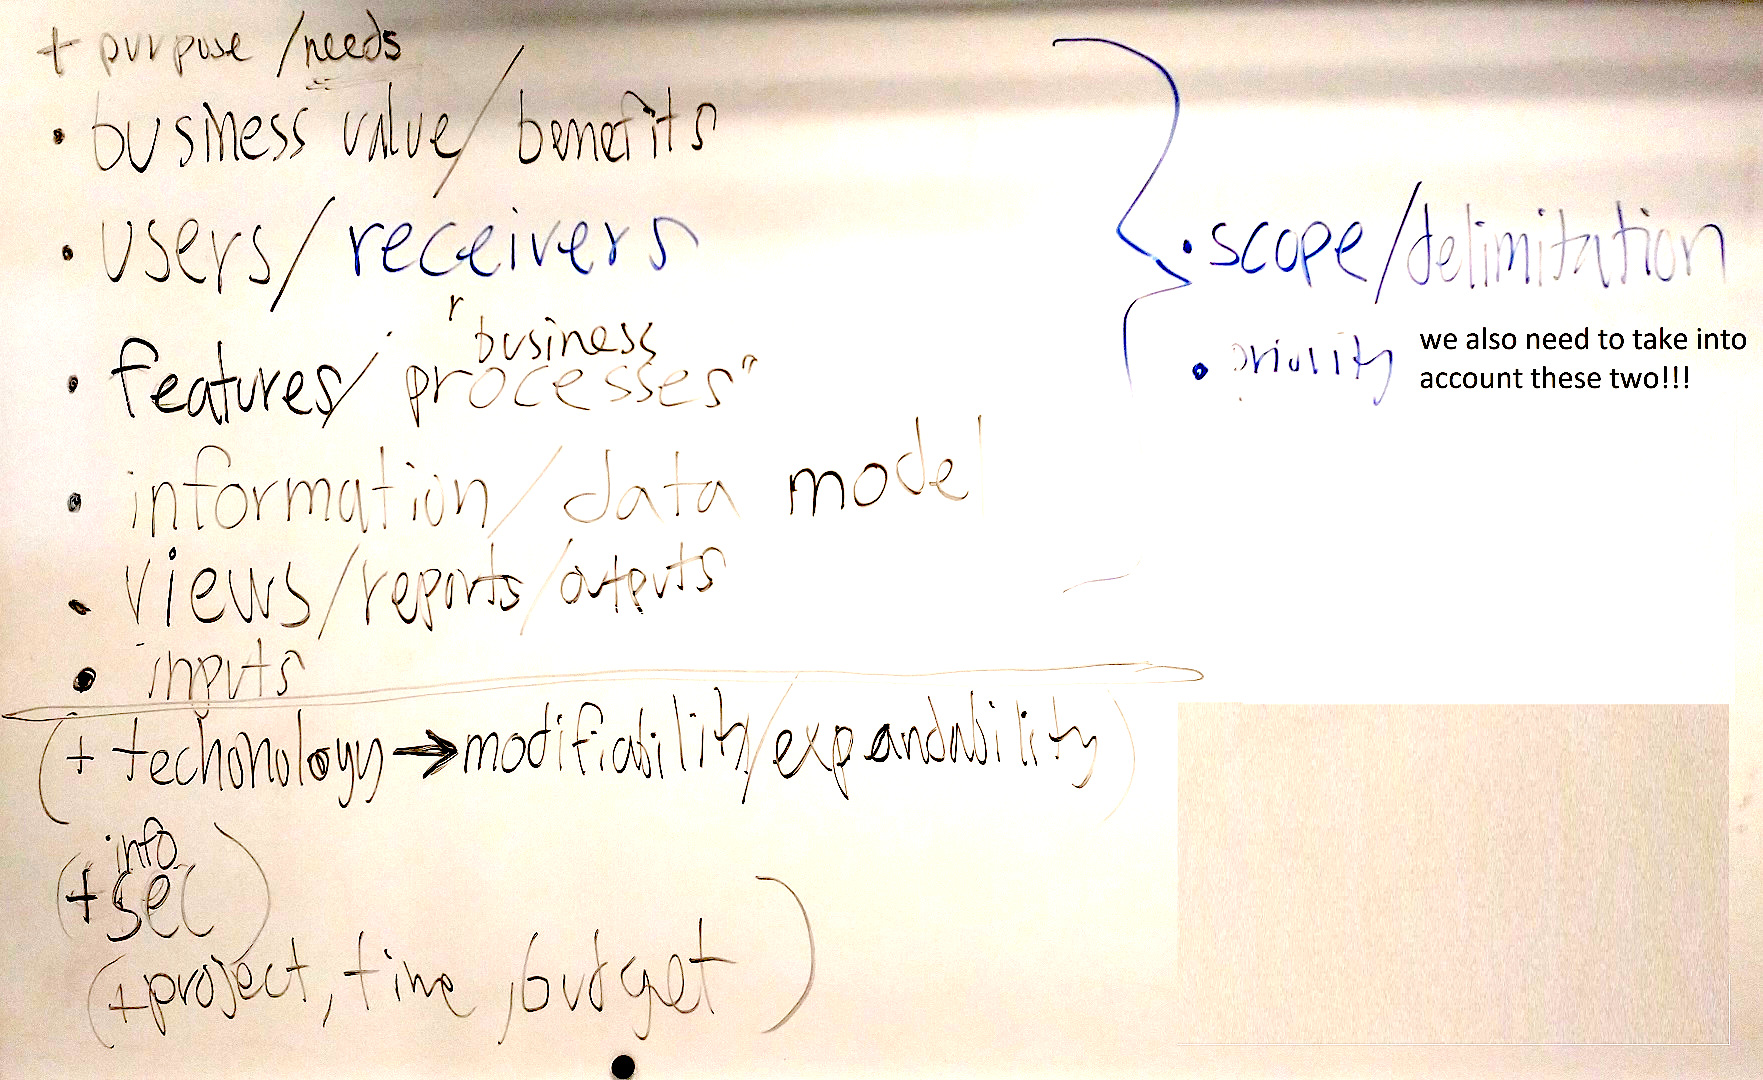 + purpose / needs
• business value / benefits
• users / receivers
• features / "business processes"
• information / data model
• views / reports / outputs
• inputs
(+ techonology → modifiability / expandability)
(+ info sec)
(+ project, time, budget)
• scope / delimitation
• priority
we also need to take into
account these two!!!